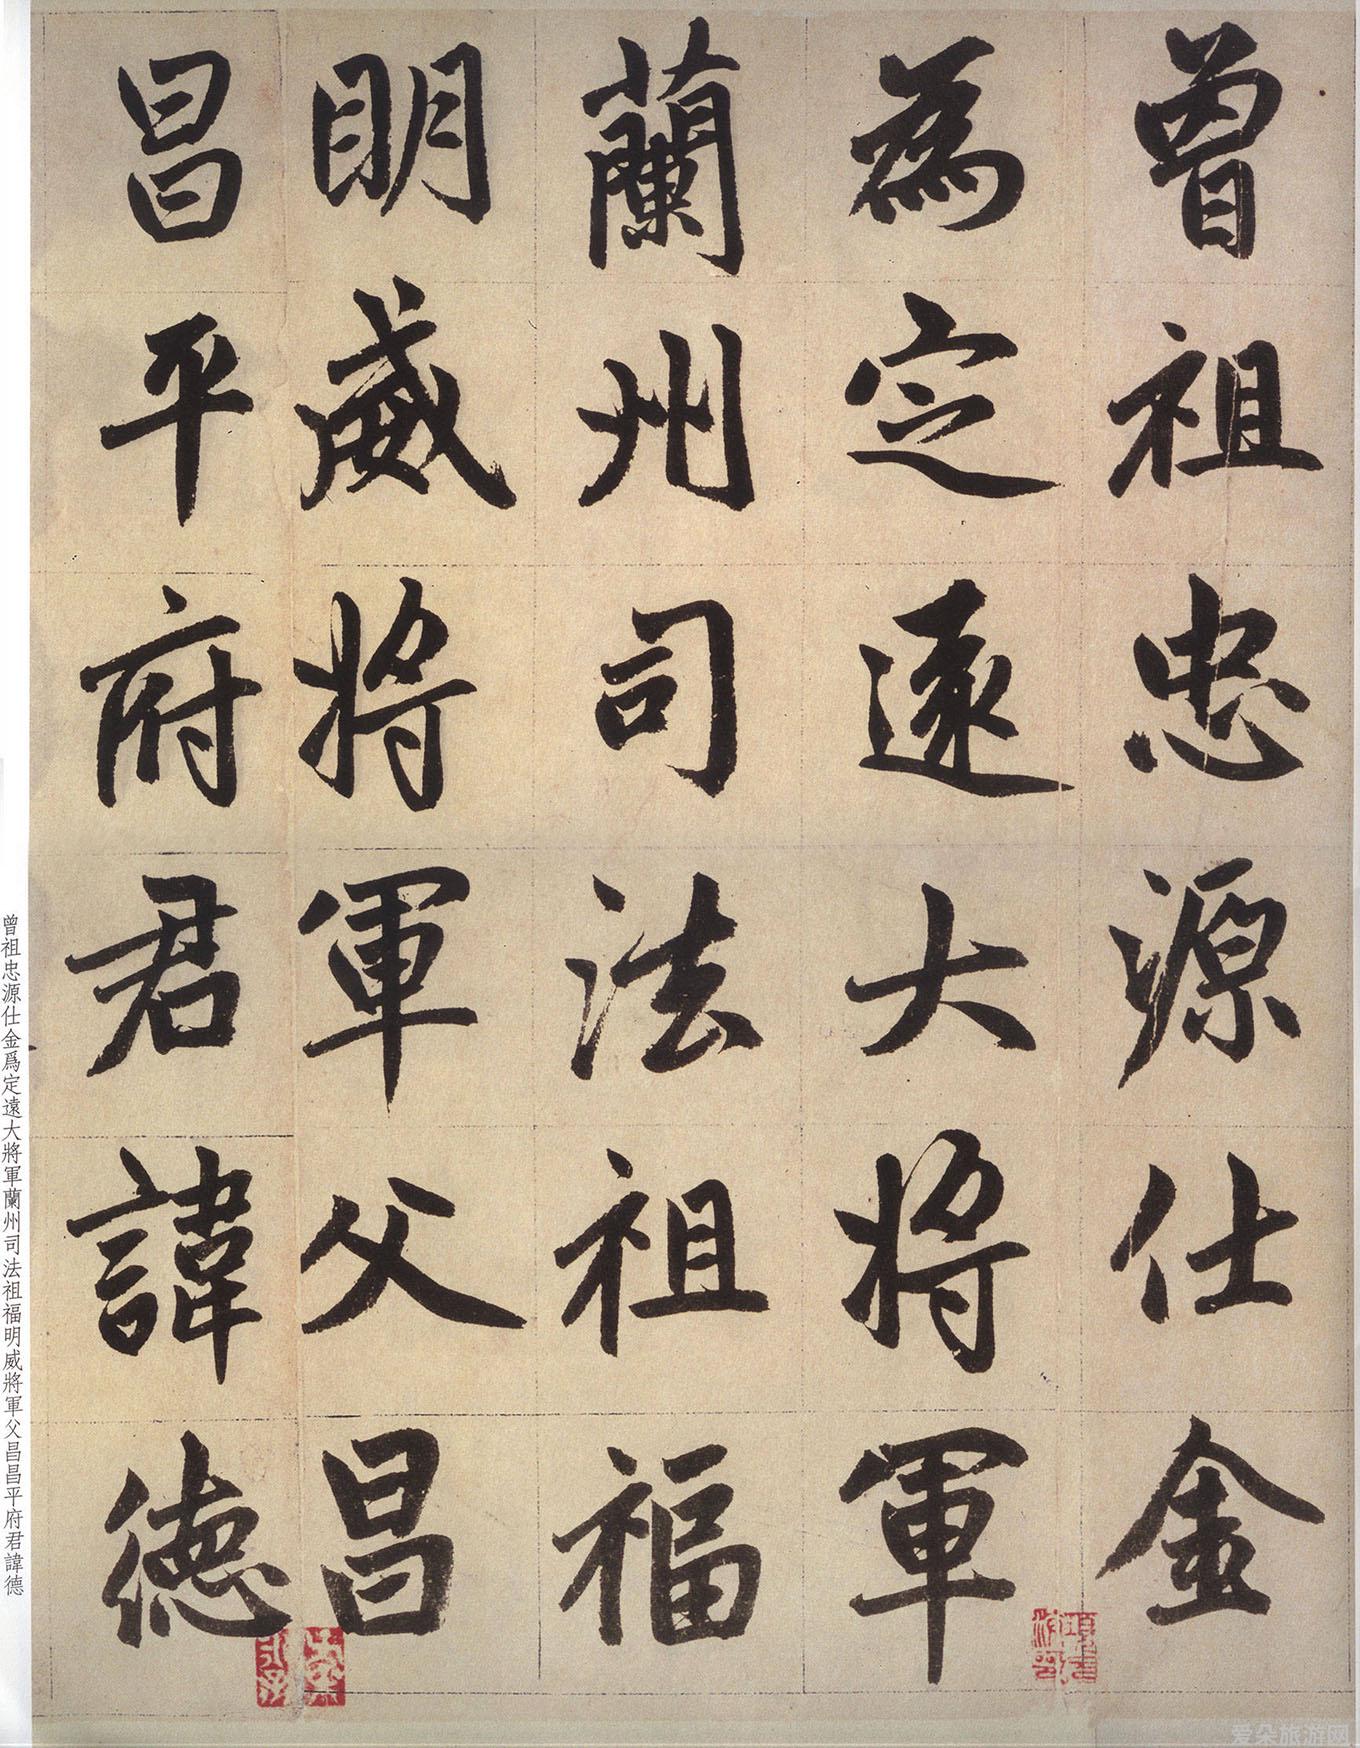 曾祖忠源仕金
為定遠大將軍
蘭州司法祖福
明威將軍父昌
昌平府君諱德
曾祖忠源仕金爲定遠大將軍蘭州司法祖福明威將軍父昌昌平府君諱德
爱朵旅游网